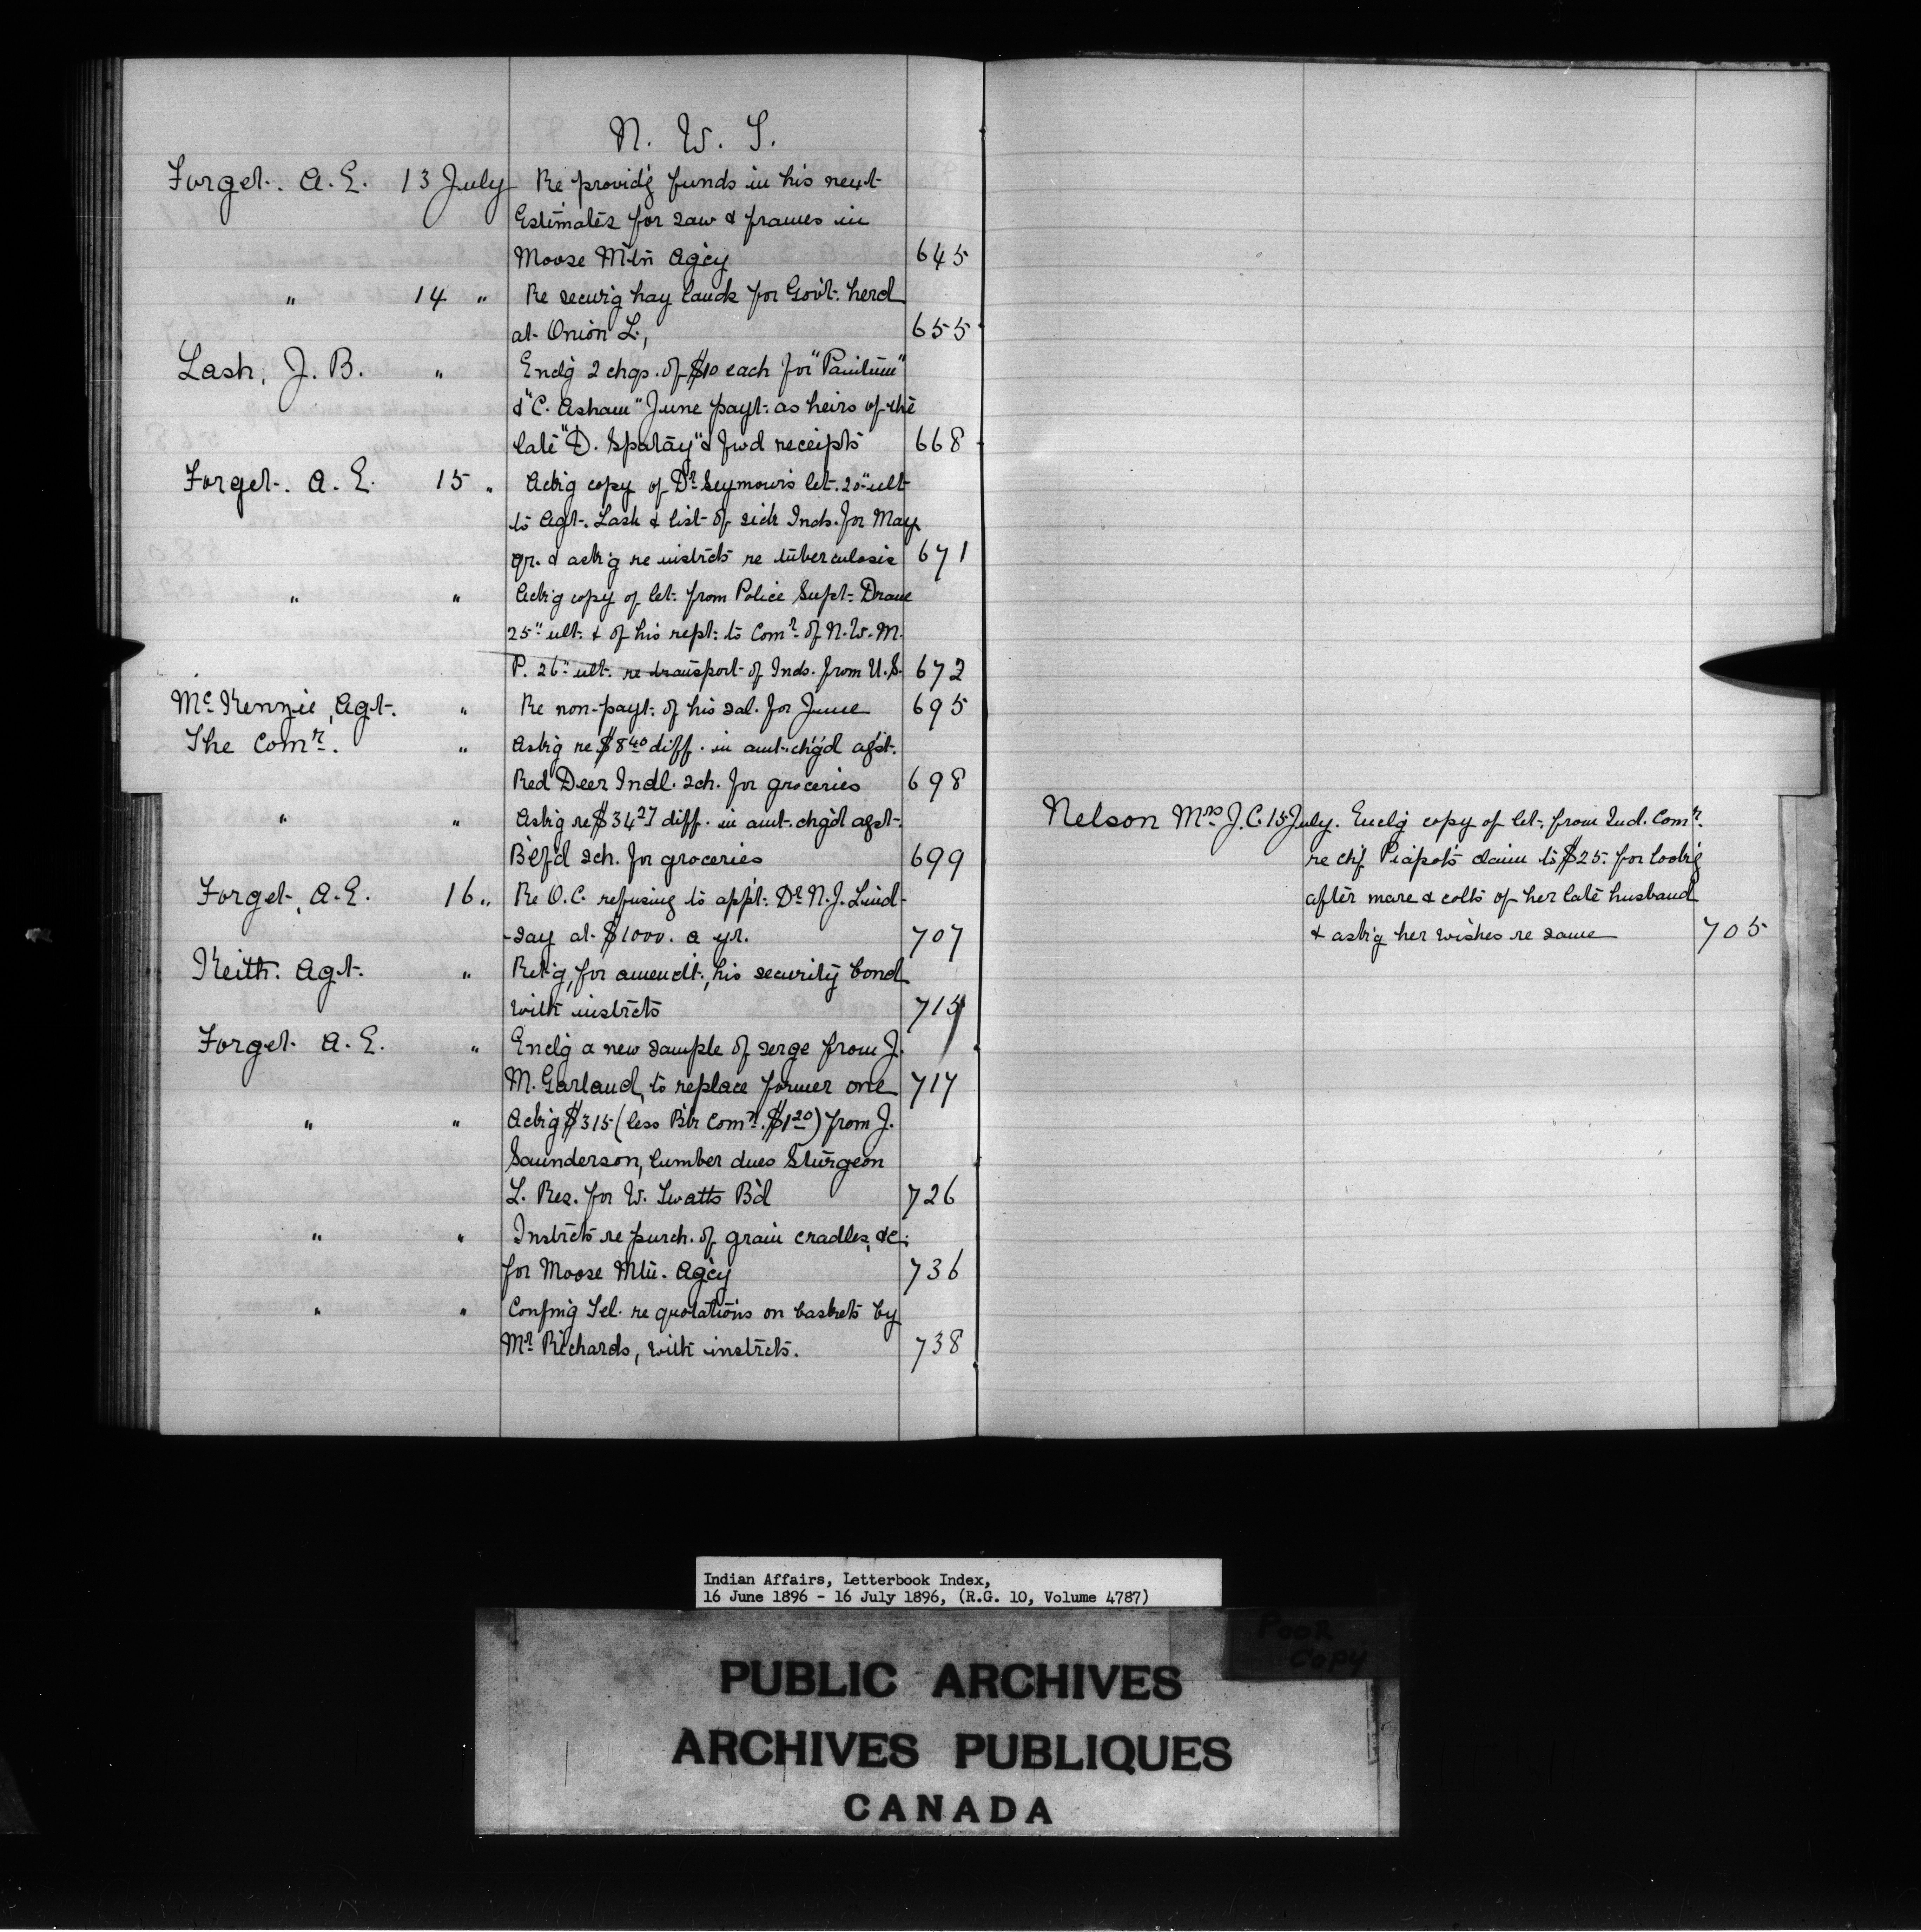 N. W. T.
Forget. A. E. 13 July Re provid'g funds in his next
Estimates for saw & frames in
Moose Mtn Ag'cy 645
" 14 " Re secur'g hay lands for Gov't. herd
at Onion L., 655
Lash, J. B. " Encl'g 2 chqs. of $10 each for
& "C. Asham" June payt. as heirs of the
late "D. " & fwd receipts 668
Forget. A. E. 15 " Ack'g copy of Dr. Seymour's let. 20" ult
to Agt. Lash & list of sick Inds. for May
qr. & ask'g re instrcts re tuberculosis 671
" " Ack'g copy of let. from Police Supt.
25" ult. & of his rept. to Comr. of N. W. M.
P. 26" ult. re transport of Inds. from U.S. 672
McKenzie, Agt. " Re non-payt. of his sal. for June 695
The Comr. " Ask'g re $8 40 diff. in amt. ch'g'd ag'st.
Red Deer Indl. sch. for groceries 698
" " Ask'g re $34 27 diff. in amt. chg'd agst.
B'lf'd sch. for groceries 699
Forget, A. E. 16 " Re O.C. refusing to app't. Dr. N. J. Lind-
-say at $1000. a yr. 707
Keith. Agt. " Ret'g, for amendt., his security bond
with instrcts 715
Forget A. E. " Encl'g a new sample of serge from J.
M. Garland, to replace former one 717
" " Ack'g $315 (less B'k Comn. $1 20) from J.
Saunderson, lumber dues Sturgeon
L. Res. for W. Twatts B'd 726
" " Instrcts re purch. of grain cradles, &c.
for Moose Mtn. Ag'cy 736
" " Confm'g Tel. re quotations on baskets by
Mr. Richards, with instrcts. 738
Nelson Mrs J. C. 15 July. Encl'g copy of let. from Ind. Comr.
re chf Piapot's claim to $25. for look'g
after mare & colts of her late husband
& ask'g her wishes re same 705
Indian Affairs, Letterbook Index,
16 June 1896 - 16 July 1896, (R.G. 10, Volume 4787)
POOR
COPY
PUBLIC ARCHIVES
ARCHIVES PUBLIQUES
CANADA